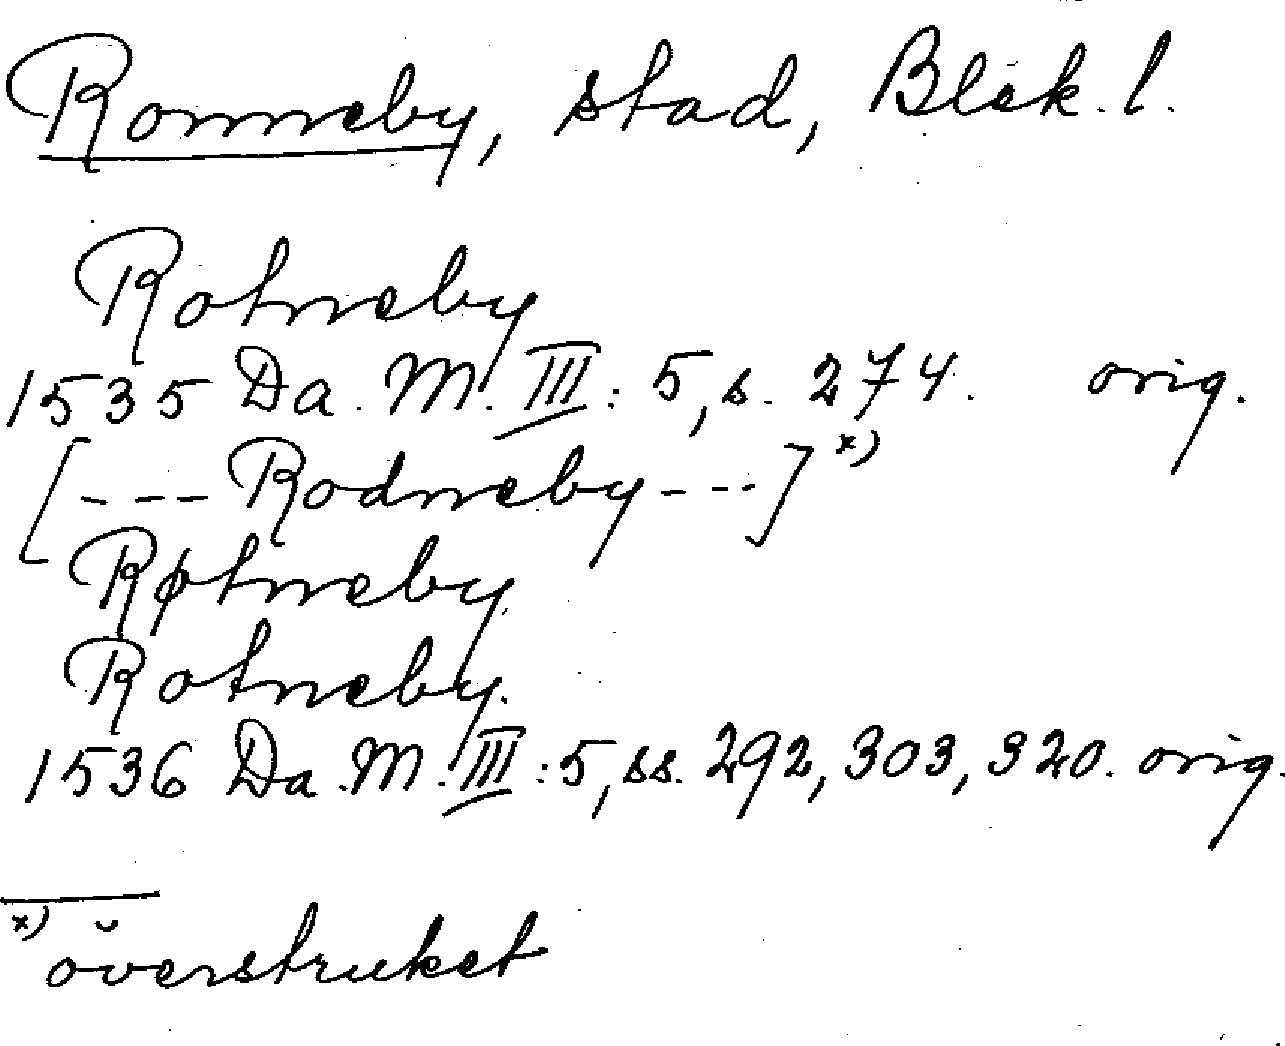 Ronneby, stad, Blek. l.
Rotneby
1535 Da. M. III: 5, s. 274. orig.
[--- Rodneby ---] x)
Røtneby
Rotneby.
1536 Da. M. III: 5, ss. 292, 303, 320. orig.
x) överstruket